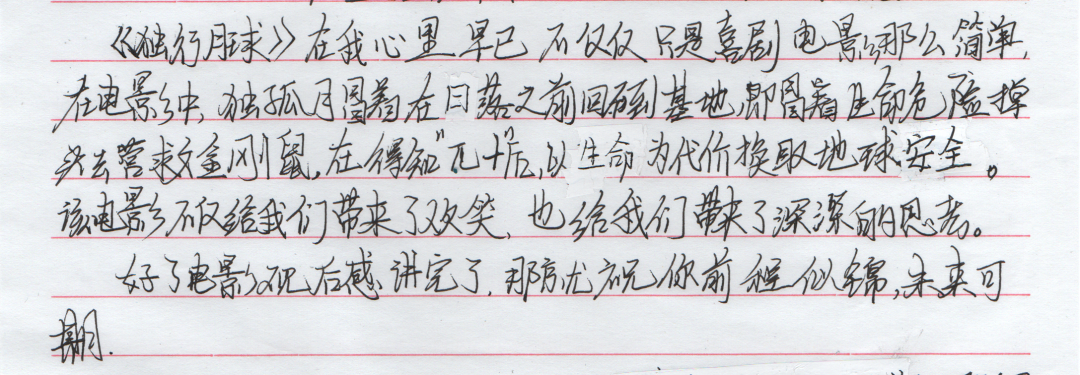 《独行月球》在我心里早已不仅仅只是喜剧电影那么简单,
在电影中,独孤月冒着在日落之前回到基地,即冒着生命危险掉
头去营救金刚鼠,在得知"π+"后,以生命为代价换取地球安全。
该电影不仅给我们带来了欢笑,也给我们带来了深深的思考。
好了电影观后感讲完了,那就祝你前程似锦,未来可
期.